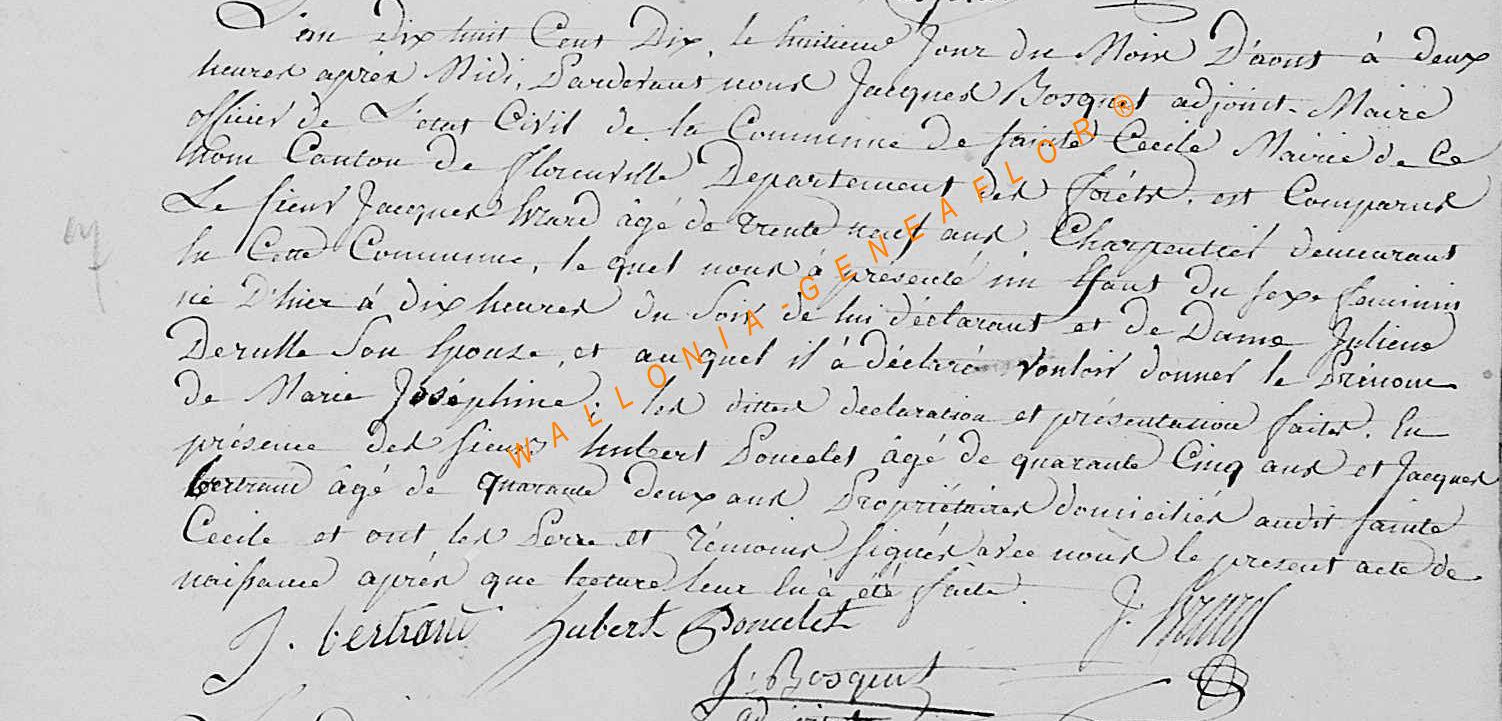 L'an Dix huit Cent Dix, le huitieme Jour du Mois D'aout à deux
heures après Midi, Pardevant nous Jacques Bosquet adjoint-Maire
officier de L'etat Civil de la Commune de sainte Cecile Mairie de Ce
nom Canton de florenville Departement des forêts, est Comparus
Le sieur Jacques âgé de trente neuf ans Charpentier demeurant
En Cette Commune, le quel nous à présenté un Efant du sexe feminin
né D'hier à dix heures du Soir de lui déclarant et de Dame Juliene
Derulle Son Epouse et au quel il à déclaré vouloir donner le Prénom
de Marie Joséphine; les dittes declaration et présentation faites. En
présence des sieurs hubert Poncelet âgé de quarante Cinq ans et Jacques
bertrand âgé de quarante deux ans Propriétaires domiciliés audit sainte
Cecile et ont les Perre et témoins signés avec nous le present acte de
naissance après que lecture leur en à été faite.
J. bertrand hubert Poncelet J.
J. Bosquet
adjoint
WALLONIA-GENEAFLOR®